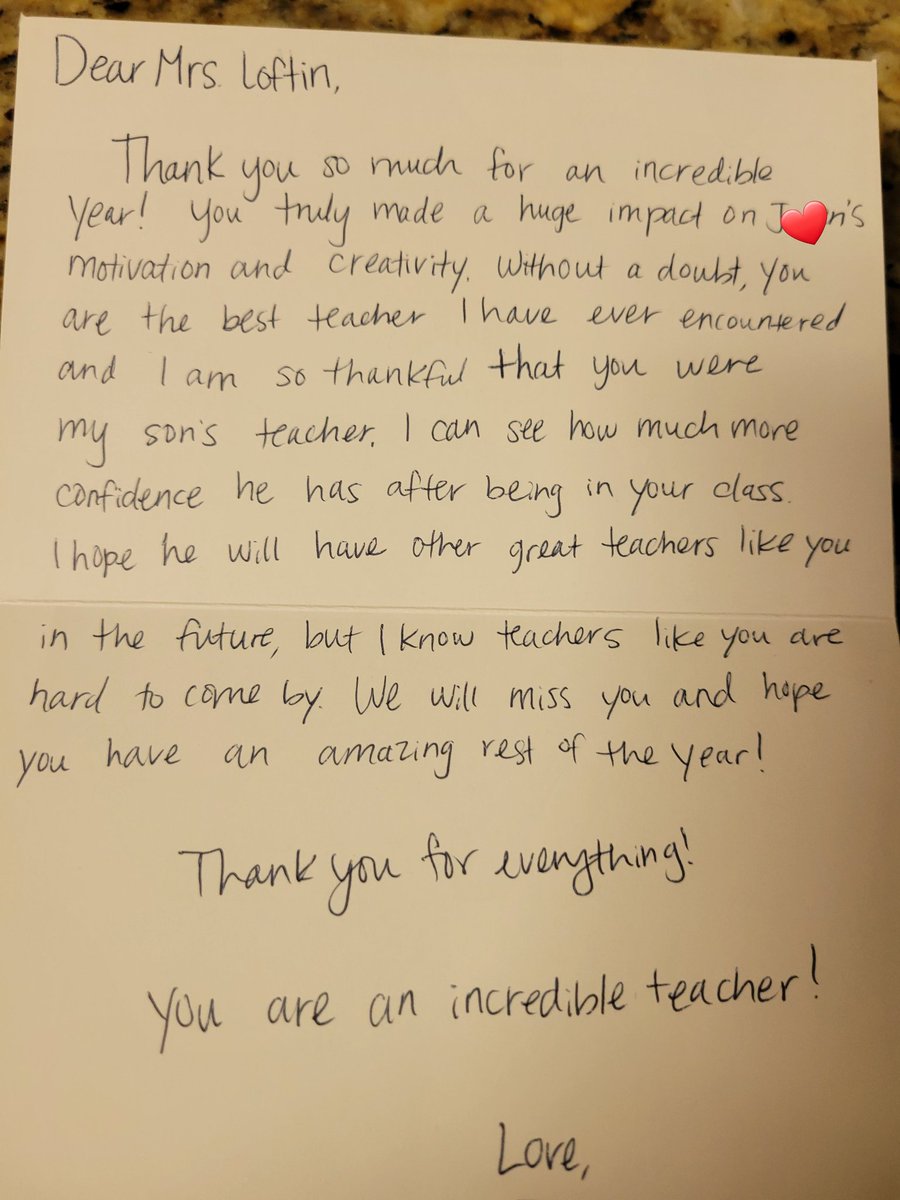 Dear Mrs. Loftin,
Thank you so much for an incredible
year! You truly made a huge impact on J❤️n's
motivation and creativity. Without a doubt, you
are the best teacher I have ever encountered
and I am so thankful that you were
my son's teacher. I can see how much more
confidence he has after being in your class.
I hope he will have other great teachers like you
in the future, but I know teachers like you are
hard to come by. We will miss you and hope
you have an amazing rest of the year!
Thank you for everything!
You are an incredible teacher!
Love,